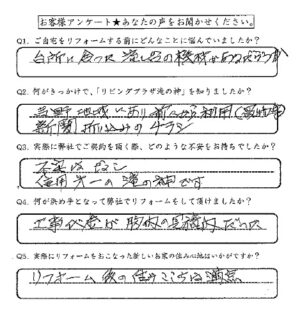 お客様アンケート★あなたの声をお聞かせください。
Q1. ご自宅をリフォームする前にどんなことに悩んでいましたか?
台所に合った流し台の機種があるだろうか
Q2. 何がきっかけで、「リビングプラザ滝の神」を知りましたか?
吉野地域にあり前から利用
新聞折り込みのチラシ
Q3. 実際に弊社でご契約を頂く際、どのような不安をお持ちでしたか?
不安はなし
信用第一の滝の神です
Q4. 何が決め手となって弊社でリフォームをして頂けましたか?
工事代金が
だった
Q5. 実際にリフォームをおこなった新しいお家の住み心地はいかがですか?
リフォーム後の住みここちは満点